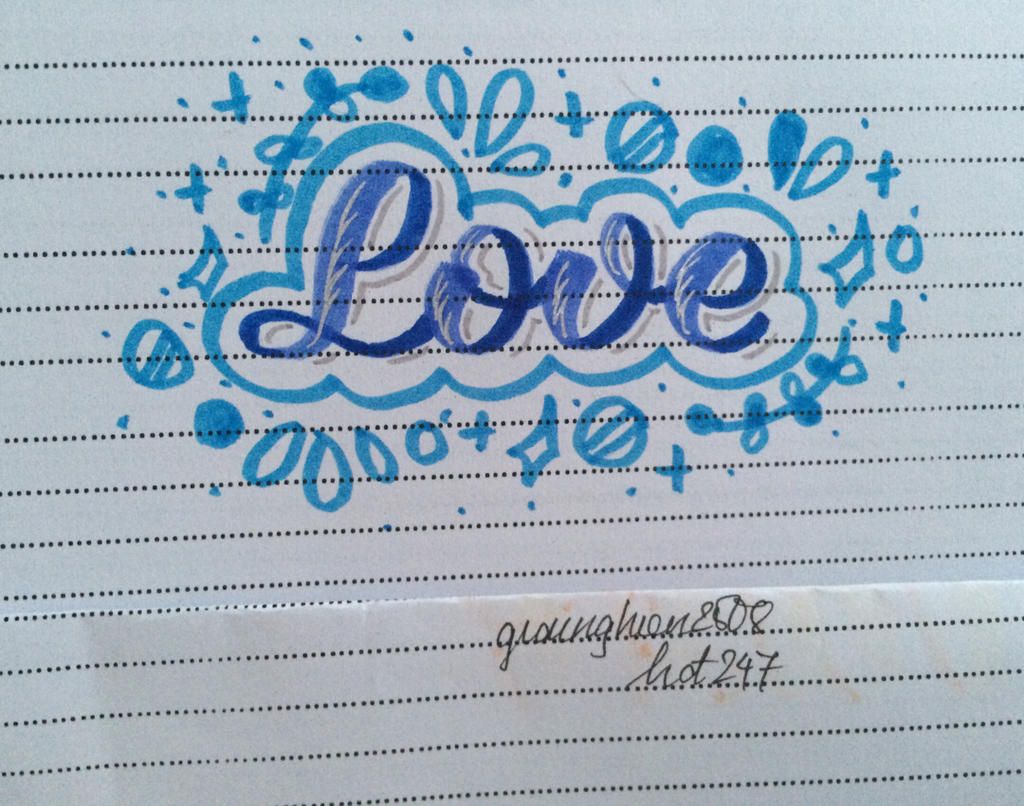 Love
gianghian2508
hot247